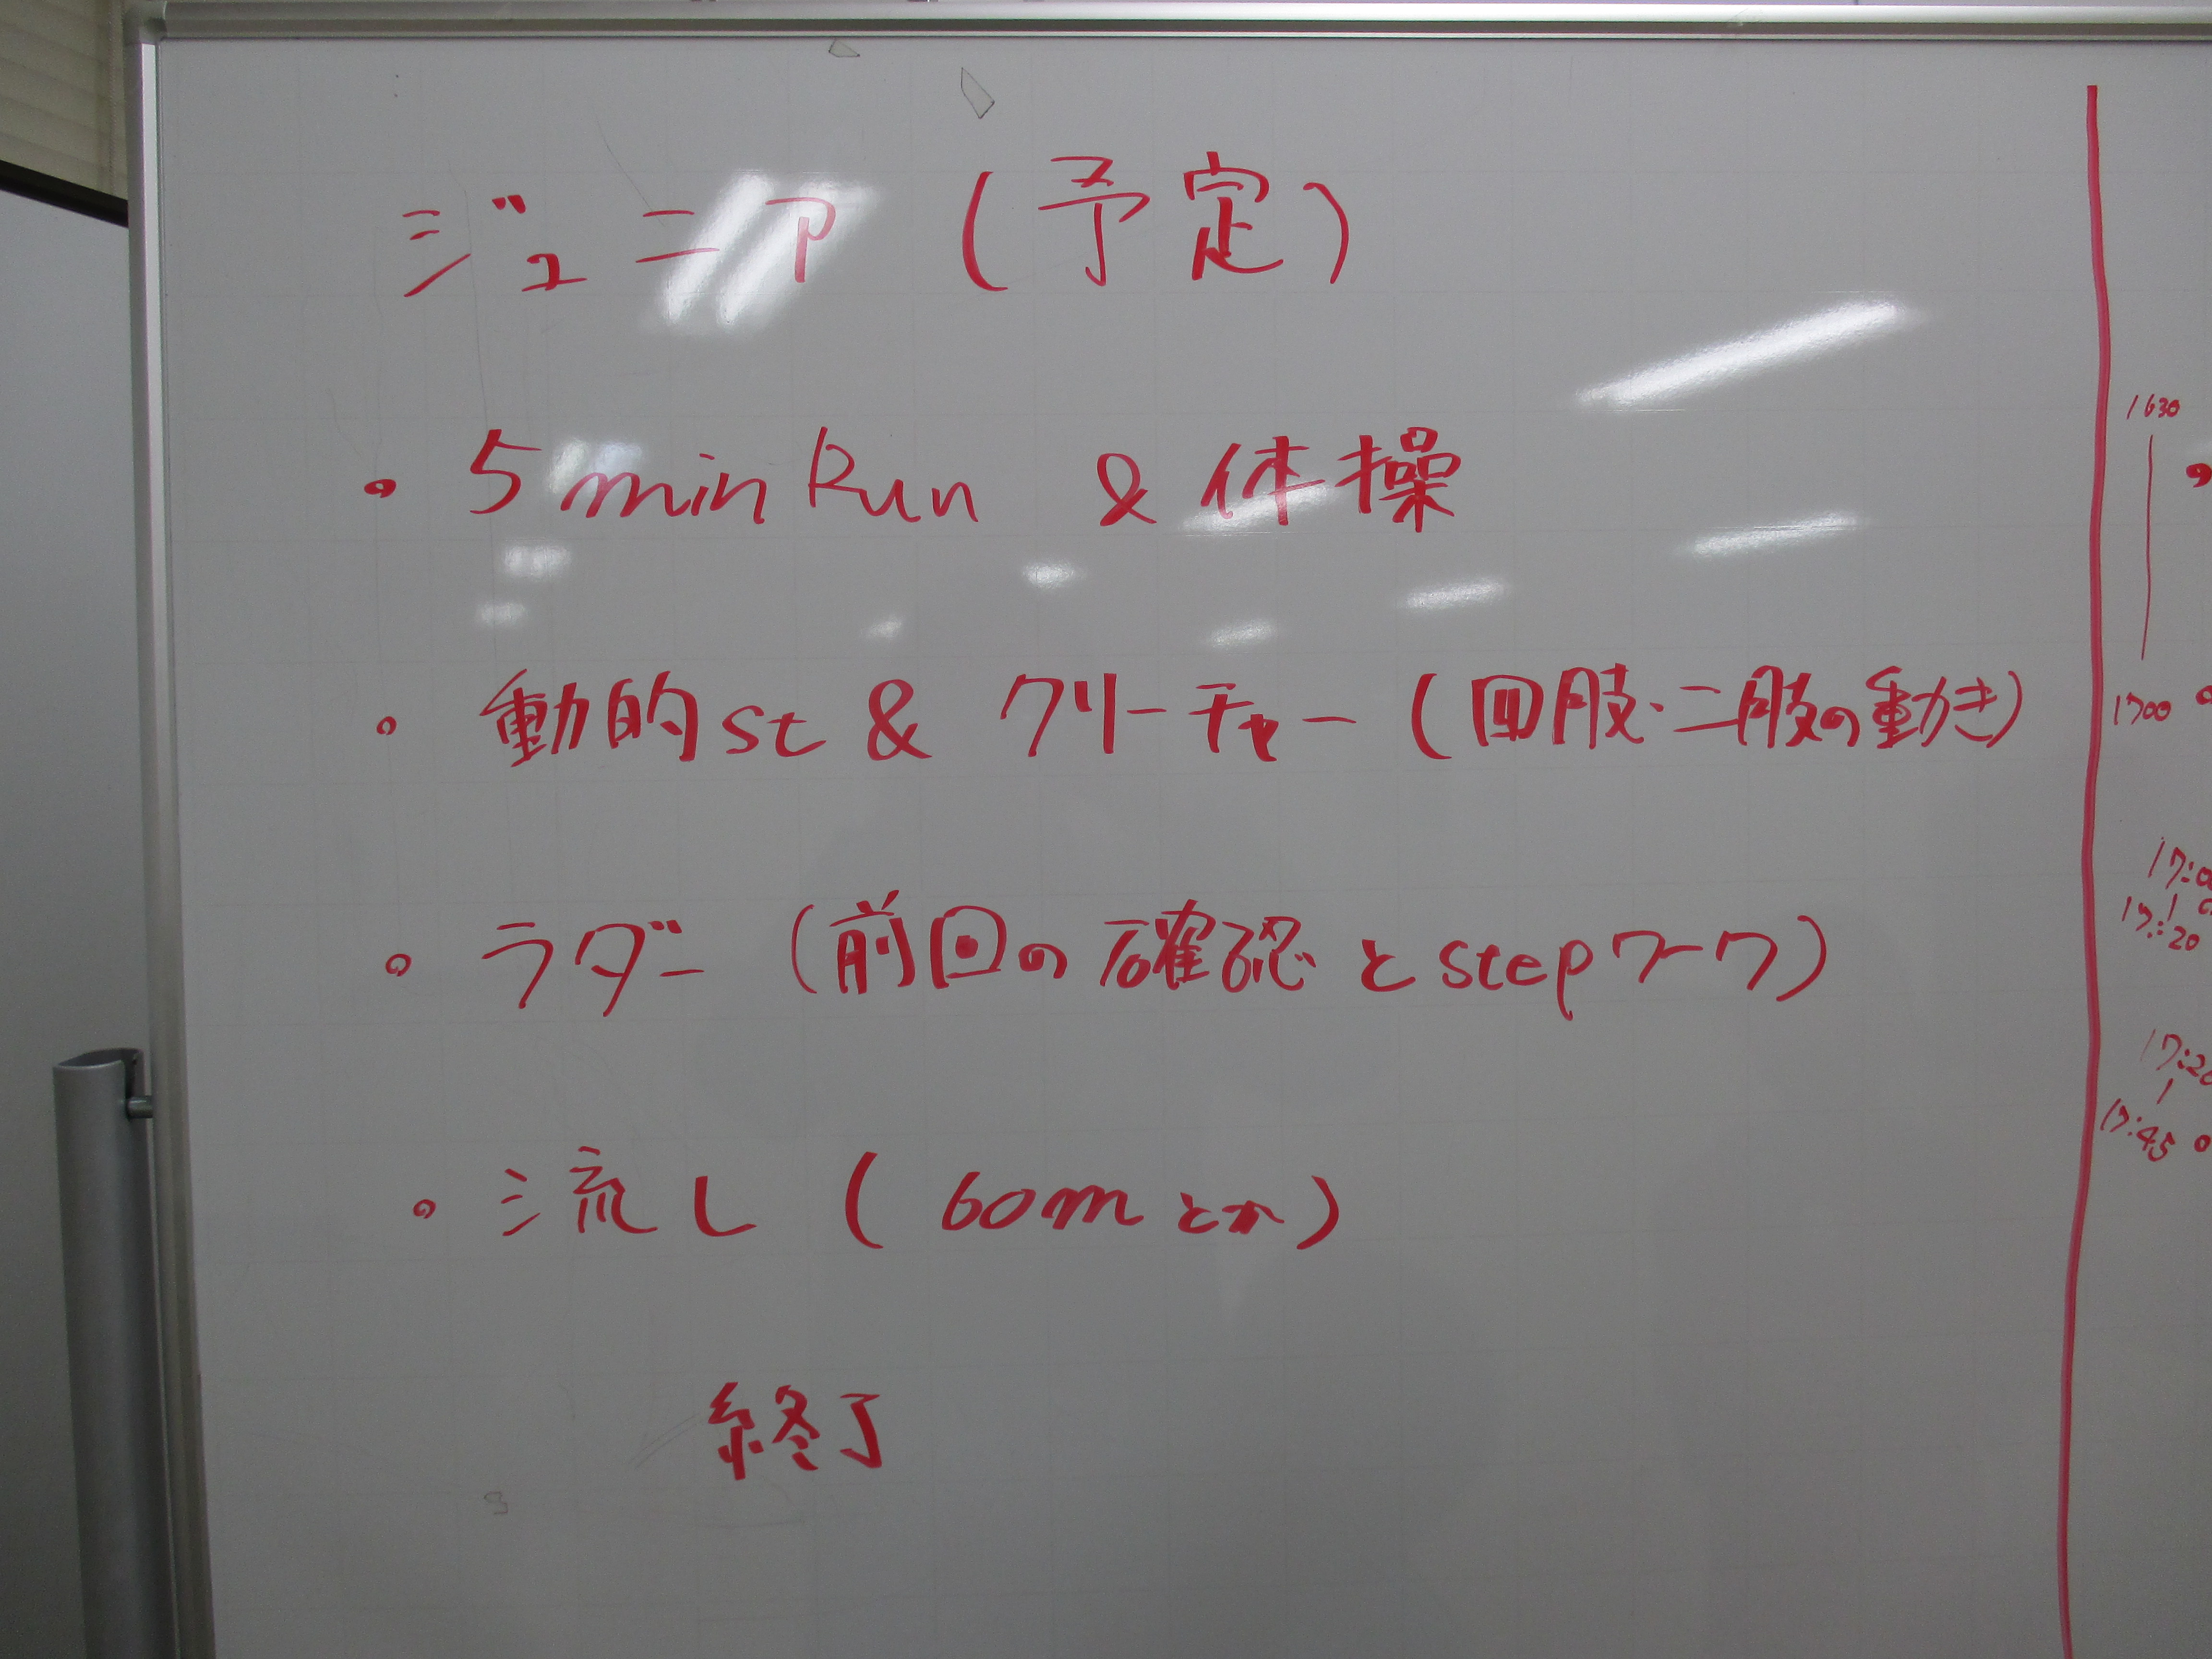 ジュニア (予定)
・ 5min Run & 体操
・ 動的st & クリーチャー (四肢・二肢の動き)
・ ラダー (前回の確認とstepワーク)
・ 流し (60mとか)
終了
1630
1700
17:20
17:45